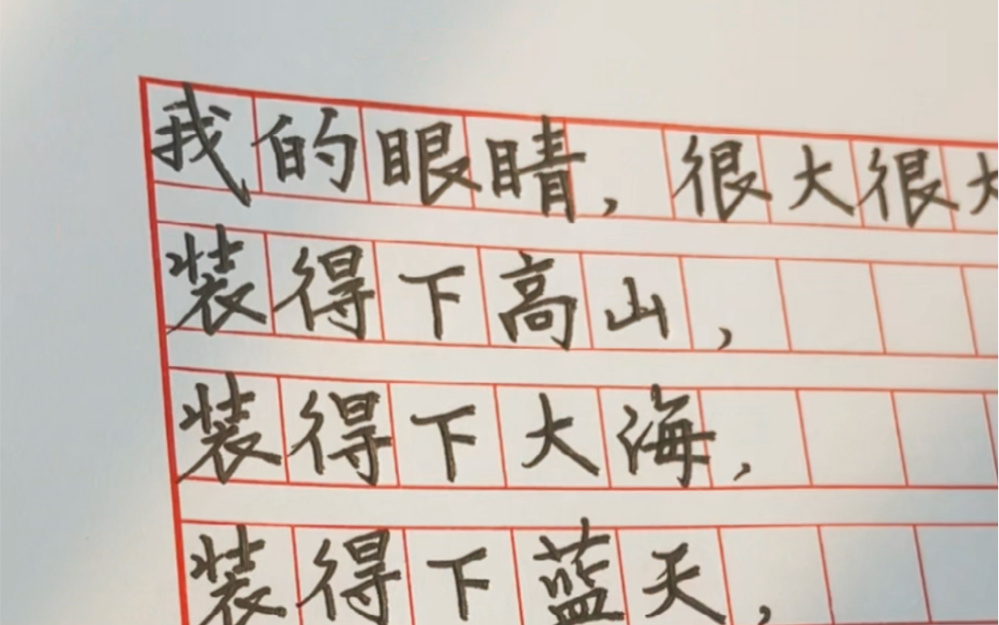 我的眼睛，很大很大
装得下高山，
装得下大海，
装得下蓝天，